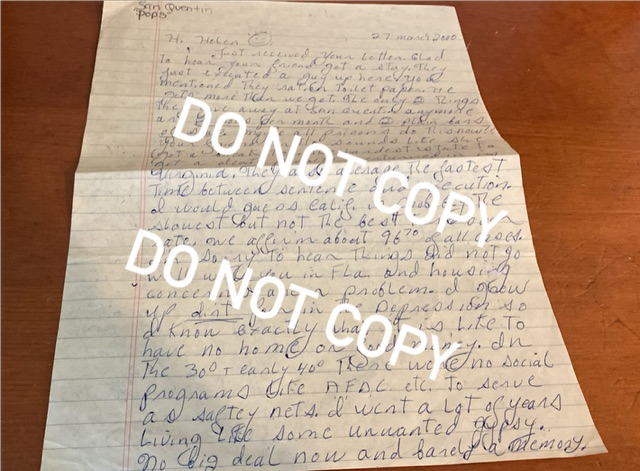 San Quentin
Pops
27 march 2000
Hi Helen
Just received your letter Glad
to hear your friend got a stay. They
just executed a guy up here. You
mentioned they ration toilet paper. He
gets more than we get. The only 2 things
the give away at San Quentin anymore
are per month and bars
all prisons do this now
sounds like she
Virginia. They average the fastest
time between sentence and execution.
I would guess Calif. is the
slowest but not the best
rate. we affirm about 96% of all cases.
sorry to hear things did not go
well with you in Fla. and housing
concerns are a problem. I grew
up dirt poor in the Depression so
I know exactly what it is like to
have no home or money. In
the 30s + early 40s There were no social
programs like AFDC etc. To serve
as saftey nets. I went a lgt of years
Living like some unwanted gypsy.
No big deal now and barely a memory.
DO NOT COPY
DO NOT COPY